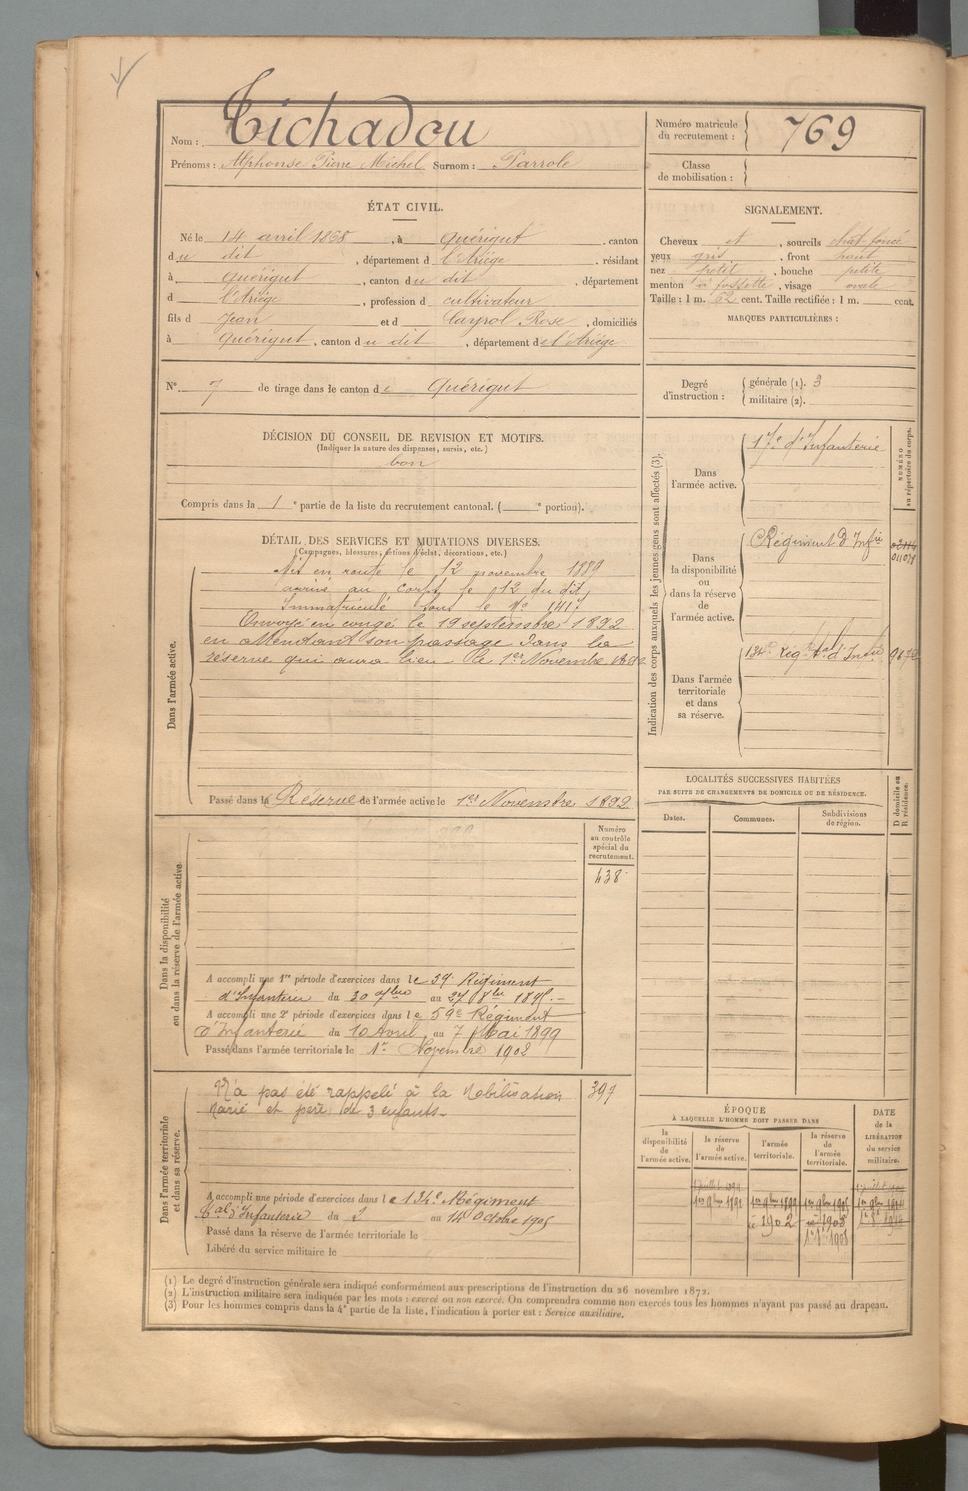 Nom : Tichadou
Prénoms : Alphonse Pierre Michel Surnom : Parrole
Numéro matricule du recrutement : 769
Classe de mobilisation :
ÉTAT CIVIL.
Né le 14 avril 1868, à Quérigut, canton
du dit, département d l'Ariège, résidant
à Quérigut, canton du dit, département
d l'Ariège, profession d cultivateur
fils d Jean et d Cayrol Rose, domiciliés
à Quérigut, canton du dit, département de l'Ariège
N° 7 de tirage dans le canton de Quérigut
SIGNALEMENT.
Cheveux et, sourcils chât foncé
yeux gris, front haut
nez petit, bouche petite
menton à fossette, visage ovale
Taille : 1 m. 62 cent. Taille rectifiée : 1 m. cent.
MARQUES PARTICULIÈRES :
Degré d'instruction :
générale (1). 3
militaire (2).
DÉCISION DU CONSEIL DE REVISION ET MOTIFS.
(Indiquer la nature des dispenses, sursis, etc.)
bon
Compris dans la 1e partie de la liste du recrutement cantonal. ( e portion).
DÉTAIL DES SERVICES ET MUTATIONS DIVERSES.
(Campagnes, blessures, actions d'éclat, décorations, etc.)
Dans l'armée active.
Mis en route le 12 novembre 1889
arrivé au corps le 12 du dit,
Immatriculé sous le N° 1417
Envoyé en congé le 19 septembre 1892
en attendant son passage dans la
réserve qui aura lieu le 1er Novembre 1892
Passé dans la Réserve de l'armée active le 1er Novembre 1892
Indication des corps auxquels les jeunes gens sont affectés (3).
NUMÉRO au répertoire du corps.
Dans l'armée active.
17e d'Infanterie
Dans la disponibilité ou dans la réserve de l'armée active.
Régiment d'Infie
Dans l'armée territoriale et dans sa réserve.
134e Régt d'Infie
LOCALITÉS SUCCESSIVES HABITÉES
PAR SUITE DE CHANGEMENTS DE DOMICILE OU DE RÉSIDENCE.
Dates.
Communes.
Subdivisions de région.
D domicile ou R résidence.
Dans la disponibilité ou dans la réserve de l'armée active.
Numéro au contrôle spécial du recrutement.
438
A accompli une 1re période d'exercices dans le 59e Régiment
d'Infanterie du 30 7bre au 27 8bre 1895
A accompli une 2e période d'exercices dans le 59e Régiment
d'Infanterie du 10 Avril au 7 Mai 1899
Passé dans l'armée territoriale le 1er Novembre 1902
Dans l'armée territoriale et dans sa réserve.
N'a pas été rappelé à la Mobilisation
Marié et père de 3 enfants
397
A accompli une période d'exercices dans le 134e Régiment
tal d'Infanterie du 2 au 14 Octobre 1905
Passé dans la réserve de l'armée territoriale le
Libéré du service militaire le
ÉPOQUE
À LAQUELLE L'HOMME DOIT PASSER DANS
la disponibilité de l'armée active.
la réserve de l'armée active.
l'armée territoriale.
la réserve de l'armée territoriale.
DATE de la LIBÉRATION du service militaire.
(1) Le degré d'instruction générale sera indiqué conformément aux prescriptions de l'instruction du 26 novembre 1872.
(2) L'instruction militaire sera indiquée par les mots : exercé ou non exercé. On comprendra comme non exercés tous les hommes n'ayant pas passé au drapeau.
(3) Pour les hommes compris dans la 4e partie de la liste, l'indication à porter est : Service auxiliaire.